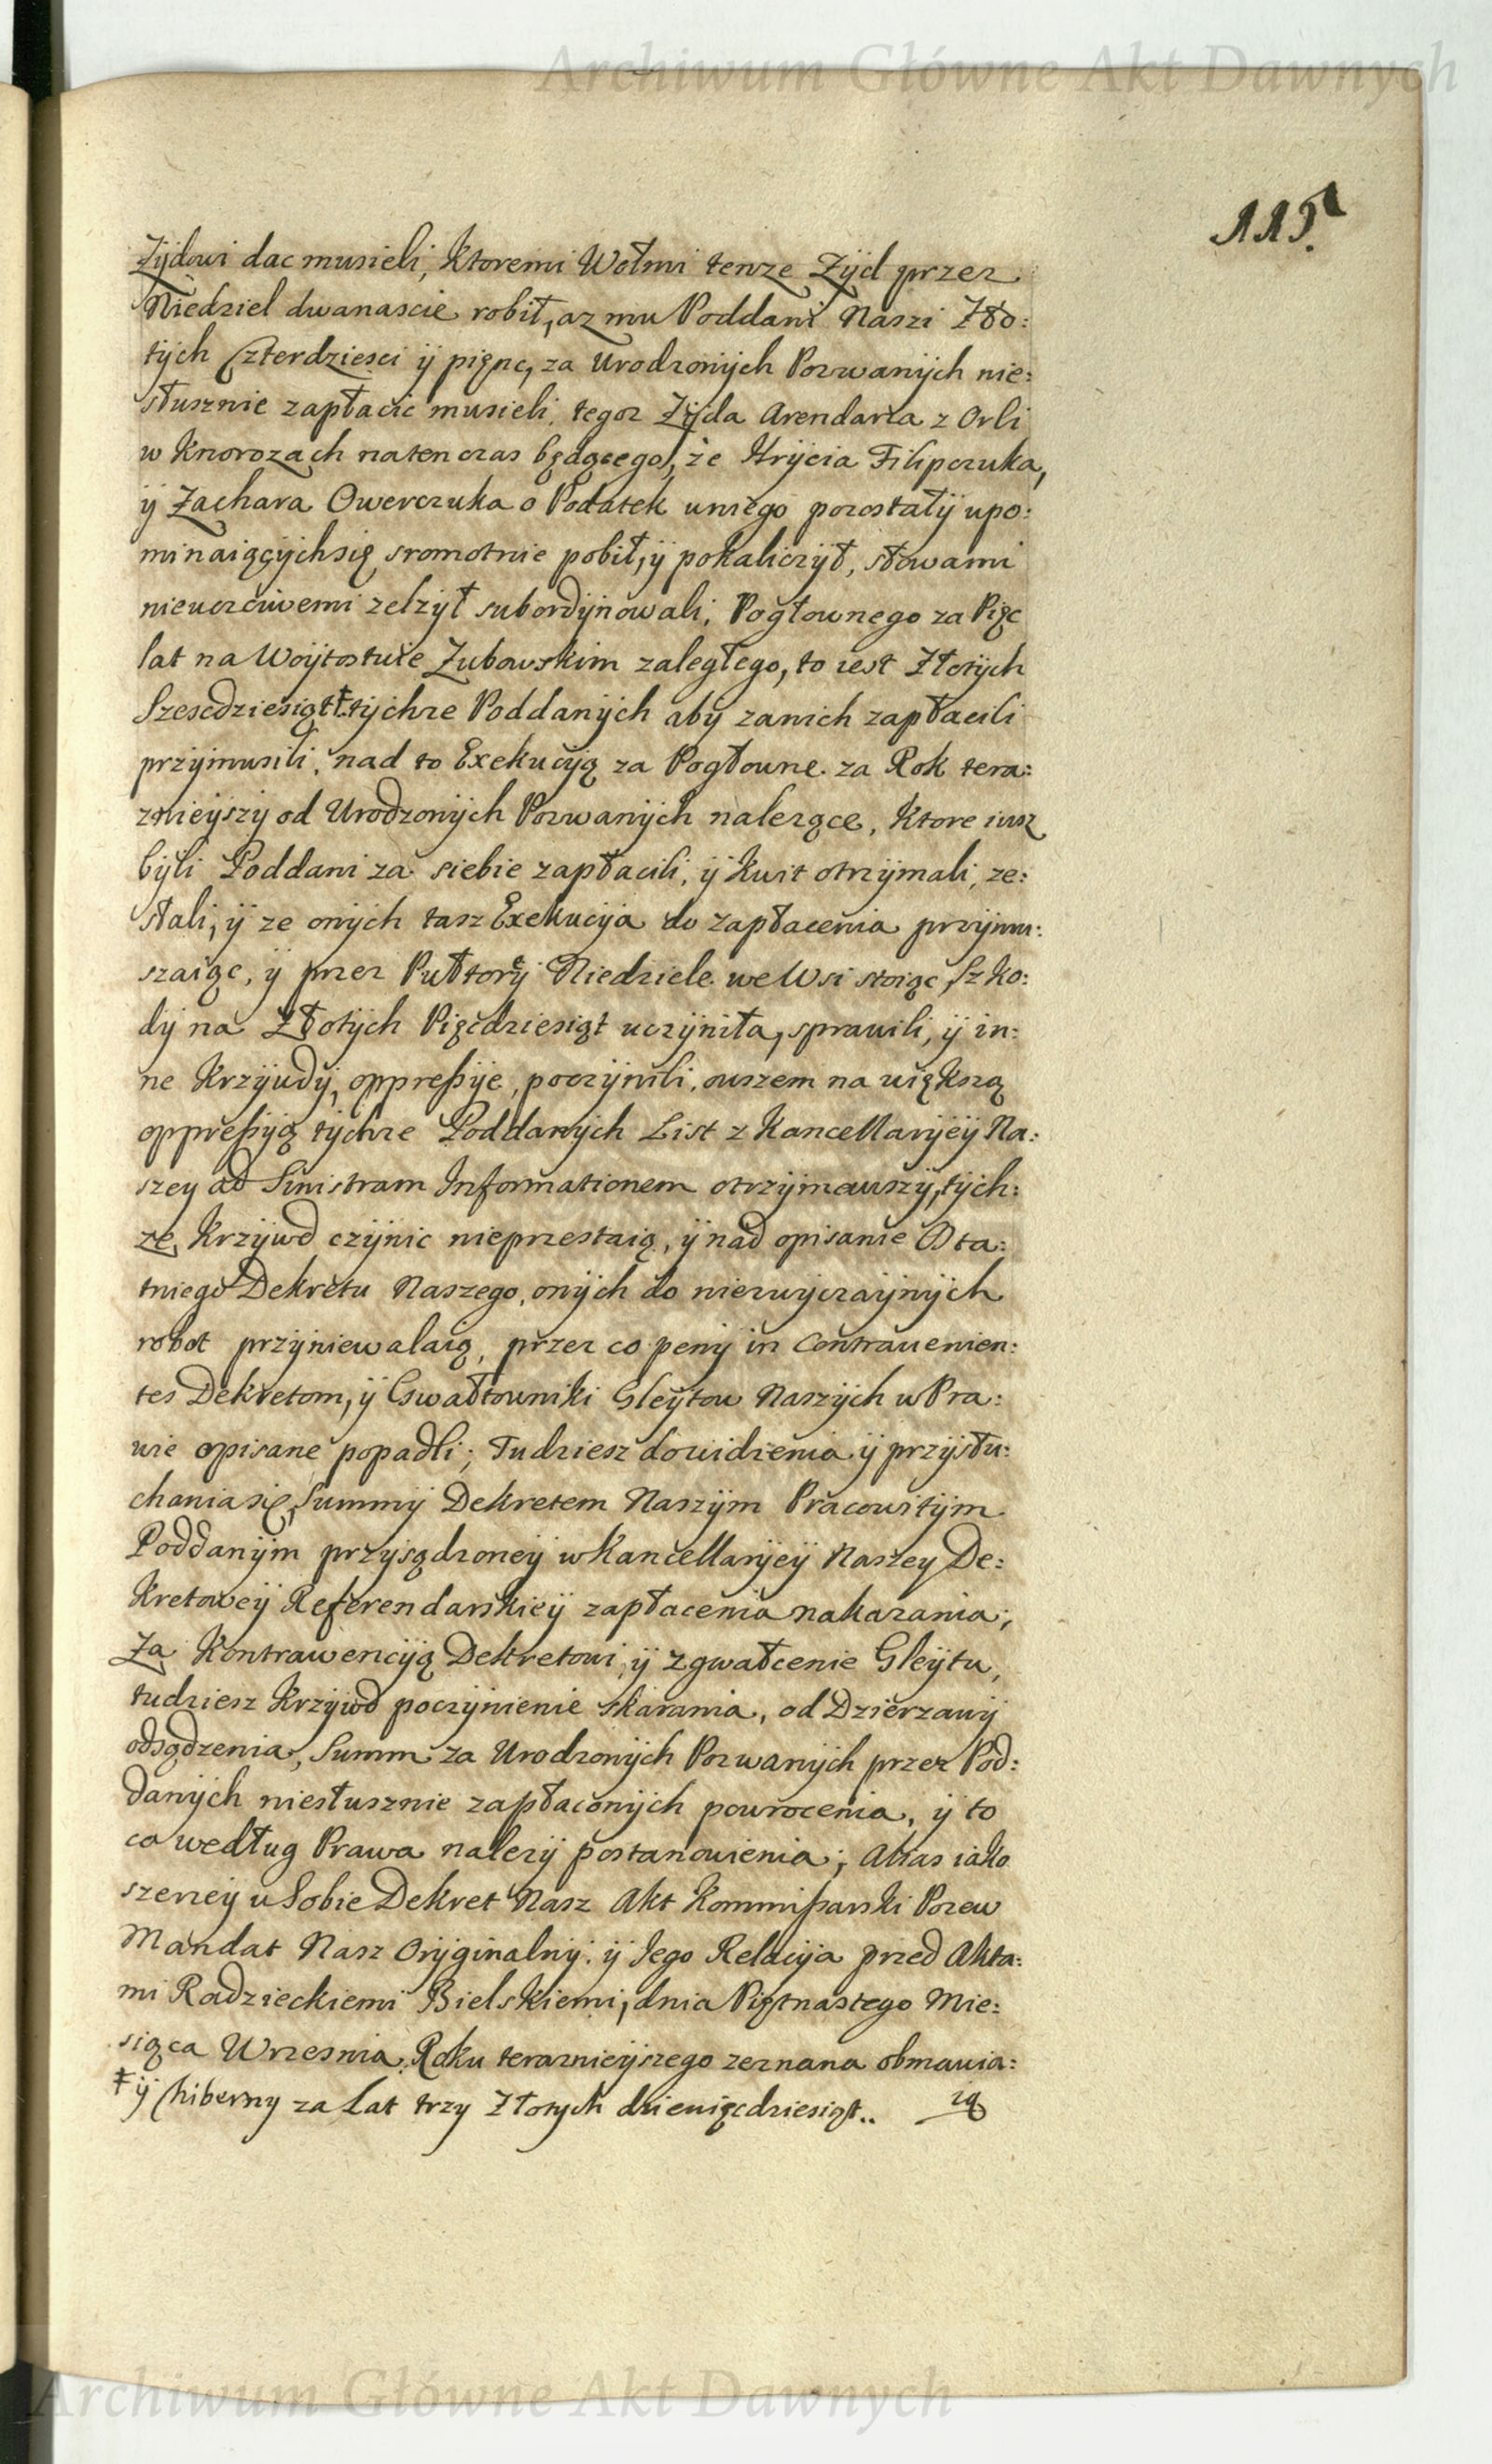 Archiwum Główne Akt Dawnych
115.
Zÿdowi dac musieli, Ktoremi Wołmi tenze Zÿd przez
Niedziel dwanascie robił, az mu Poddani Naszi Zło:
tÿch Czterdziesci ÿ pięnc, za Urodzonÿch Pozwanÿch nie:
słusznie zapłacic musieli, tegoz Zÿda Arendarza z Orli
w Knorozach natenczas będącego, że Hrÿcia Filipczuka,
ÿ Zachara Owerczuka o Podatek uniego pozostałÿ upo:
minaiącÿchsię sromotnie pobił, ÿ pokaliczÿł, słowami
nieuczciwemi zelzÿł subordÿnowali, Pogłownego za Pięc
lat na Woÿtostwie Zubowskim zaległego, to iest Złotÿch
Szescdziesiąt ‡ tÿchze Poddanÿch aby zanich zapłacili
przÿmusili, nad to Exekucÿą za Pogłowne za Rok tera:
znieÿszÿ od Urodzonÿch Pozwanÿch nalezące, Ktore iusz
bÿli Poddani za siebie zapłacili, ÿ Kwit otrzÿmali, ze:
słali, ÿ ze onÿch tasz Exekucÿa do zapłacenia przÿmu:
szaiąc, ÿ przez Pułtorÿ Niedziele we Wsi stoiąc, Szko:
dÿ na Złotÿch Pięcdziesiąt uczÿniła, sprawili, ÿ in:
ne Krzÿwdÿ, oppreßÿe, poczÿnili, owszem na większą
oppreßÿą tÿchze Poddanÿch List z Kancellarÿeÿ Na:
szey ad Sinistram Informationem otrzÿmawszÿ, tÿch:
ze Krzÿwd czÿnic nieprzestaią, ÿ nad opisanie Osta:
tniego Dekretu Naszego, onÿch do niezwÿczaÿnÿch
robot przÿniewalaią, przez co penÿ in Contravenien:
tes Dekretom, ÿ Gwałtowniki Gleÿtow Naszÿch w Pra:
wie opisane popadli; Tudziesz dowidzenia ÿ przÿsłu:
chania się, Summÿ Dekretem Naszÿm Pracowitÿm
Poddanÿm przÿsądzoneÿ w Kancellarÿeÿ Naszey De:
kretoweÿ Referendarskieÿ zapłacenia nakazania;
Za Kontrawencÿą Dekretowi, ÿ zgwałcenie Gleÿtu,
tudziesz Krzÿwd poczÿnienie skarania, od Dzierzawÿ
odsądzenia, Summ za Urodzonÿch Pozwanÿch przez Pod:
danÿch niesłusznie zapłaconÿch powrocenia, ÿ to
co według Prawa nalezÿ postanowienia; Abias iako
szerzeÿ w Sobie Dekret Nasz Akt Kommißarski Pozew
Mandat Nasz Orÿginalnÿ. ÿ Iego Relacÿa przed Akta:
mi Radzieckiemi Bielskiemi, dnia Piętnastego Mie:
siąca Wrzesnia Roku teraznieÿszego zeznana obmawia:
‡ ÿ Chiberny za Lat trzy Złotych dziewięcdziesiąt.. ią
Archiwum Główne Akt Dawnych